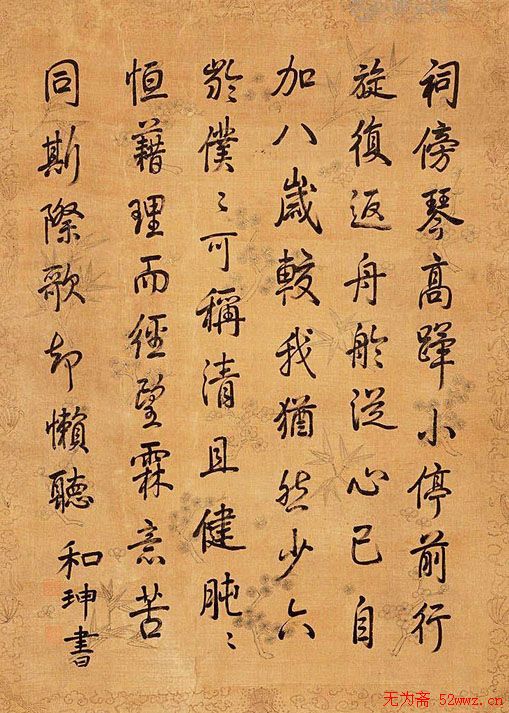 祠傍琴高蹕小停前行
旋復返舟舲從心已自
加八歲較我猶然少六
齡僕〻可稱清且健肫〻
恒藉理而經望霖意苦
同斯際歌却懶聽
和珅書
无为斋.52wwz.cn